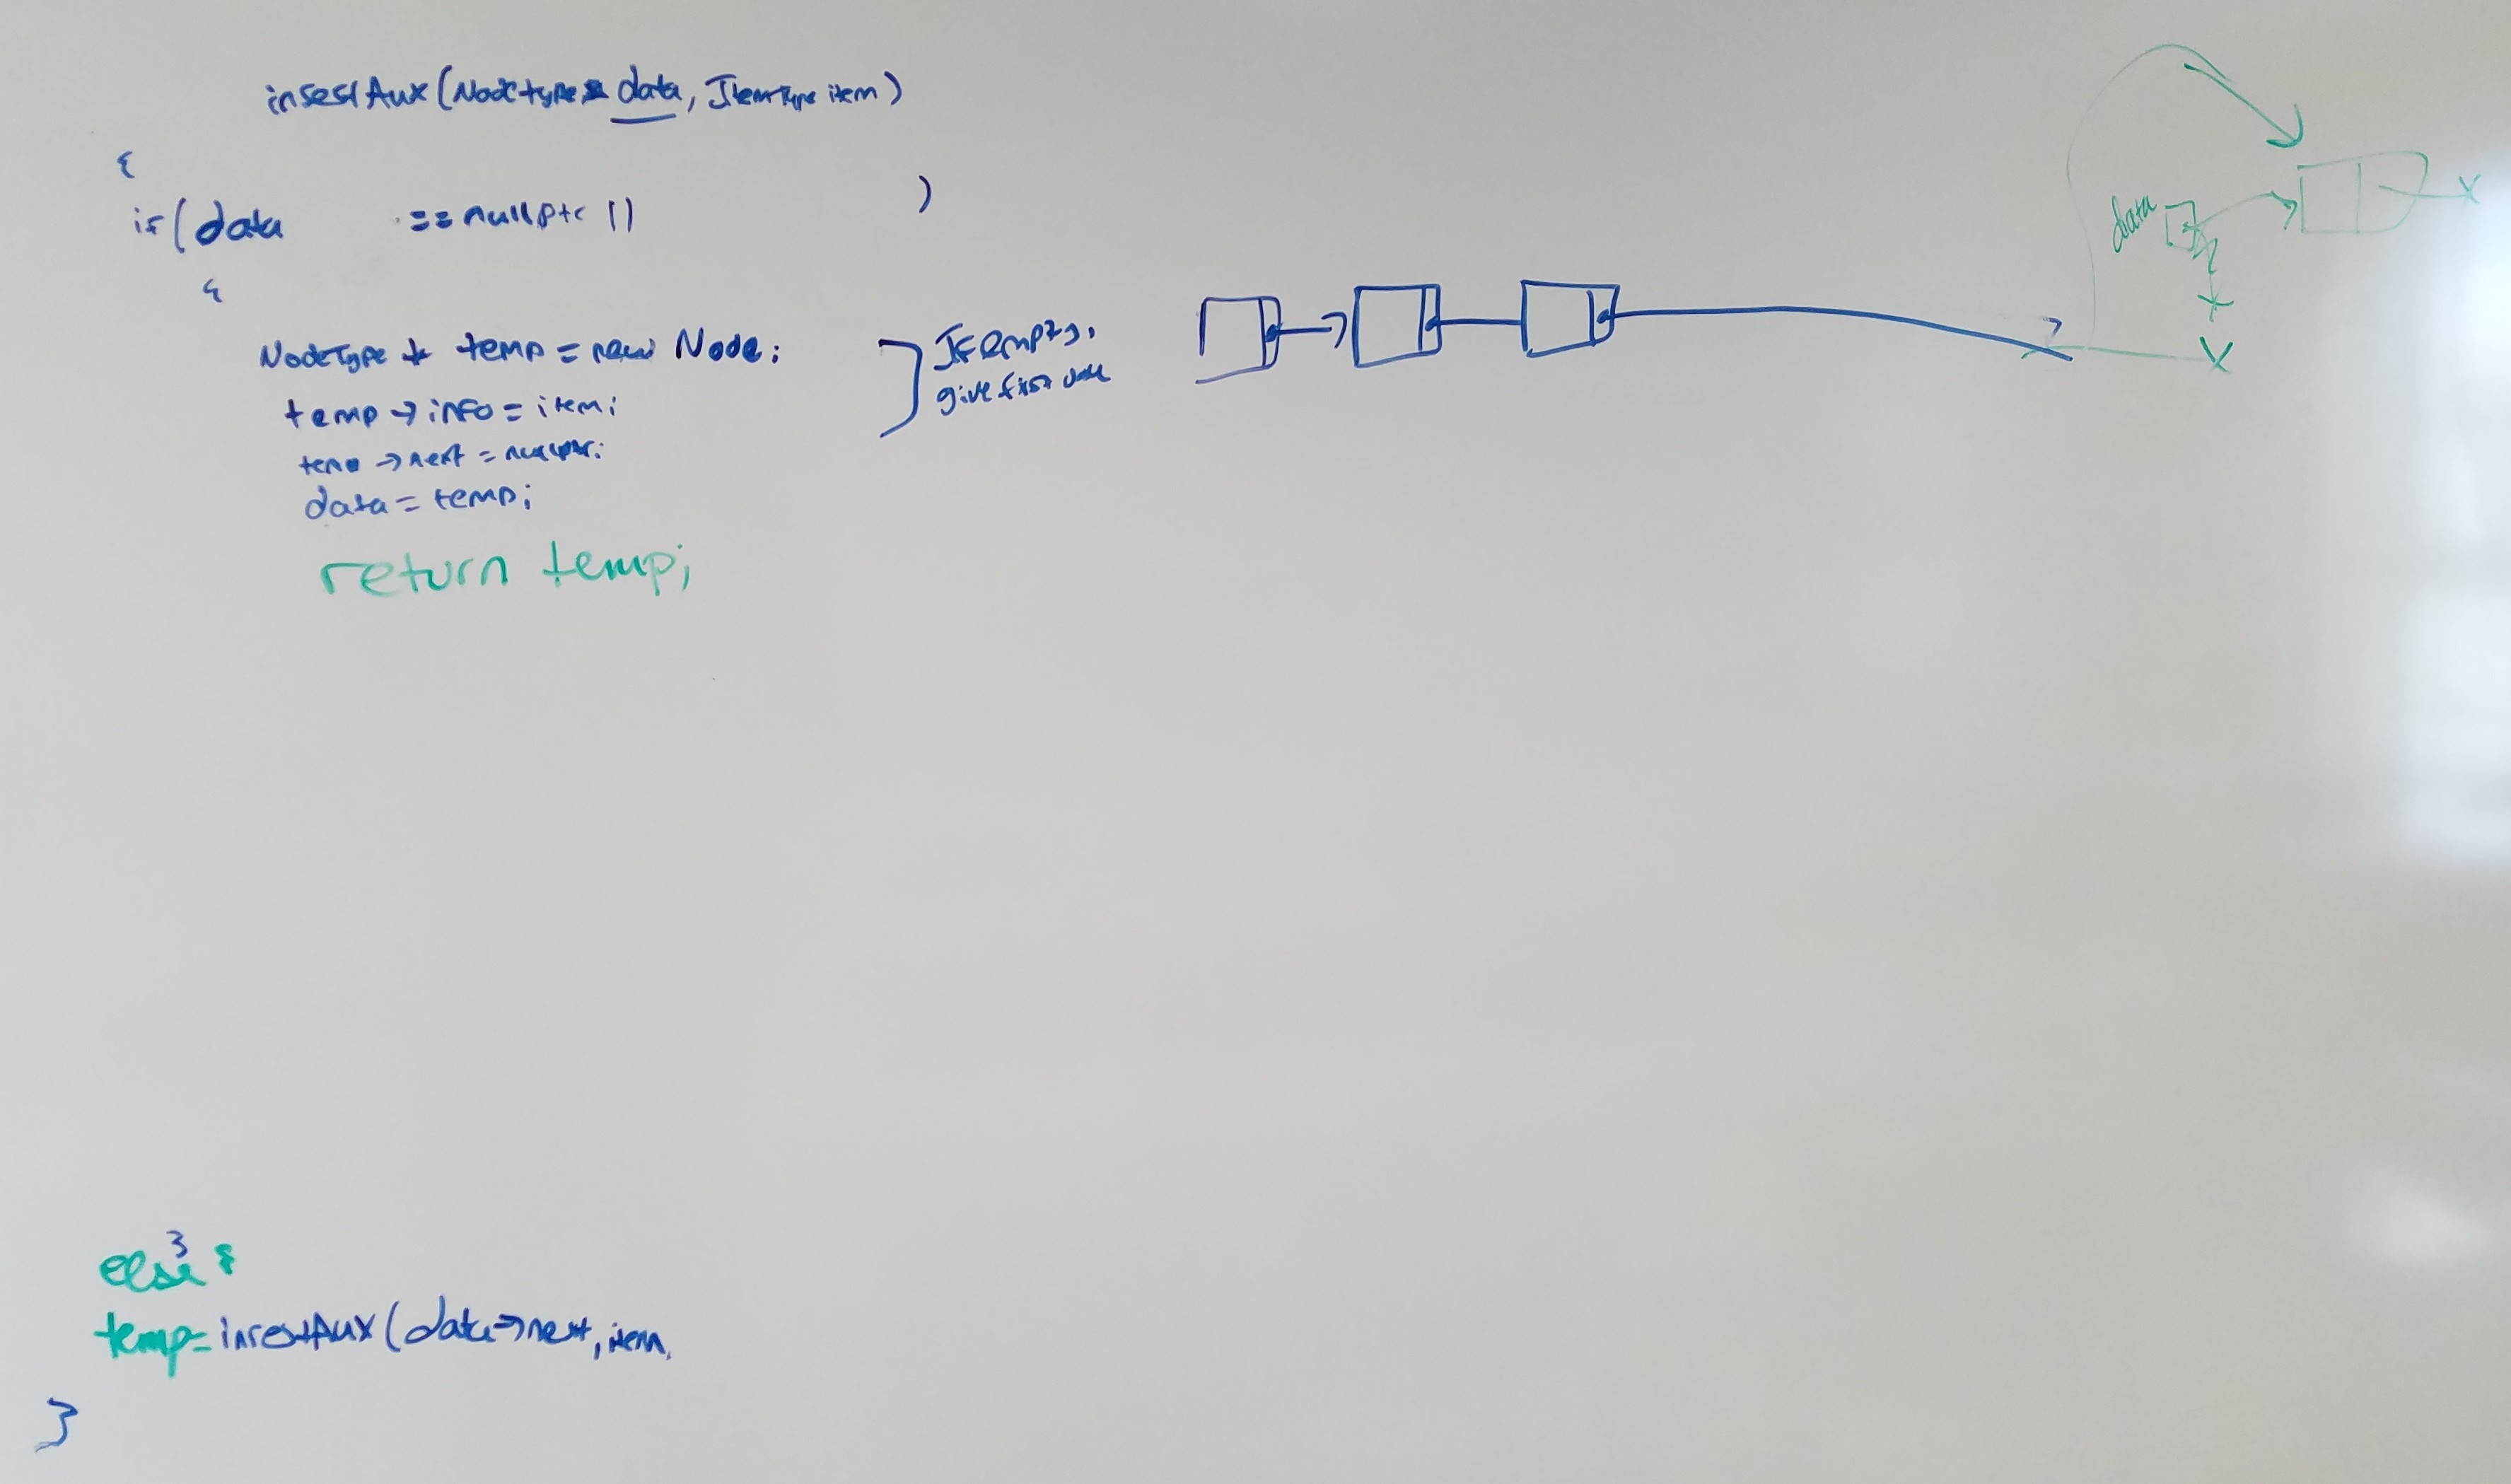 insertAux(Nodetype* data, ItemType item)
{
if(data == nullptr || )
{
NodeType * temp = new Node;
temp → info = item;
temp → next = nullptr;
data = temp;
return temp;
If empty,
give first
data
X
X
X
}
else {
temp = insertAux(data→next, item,
}